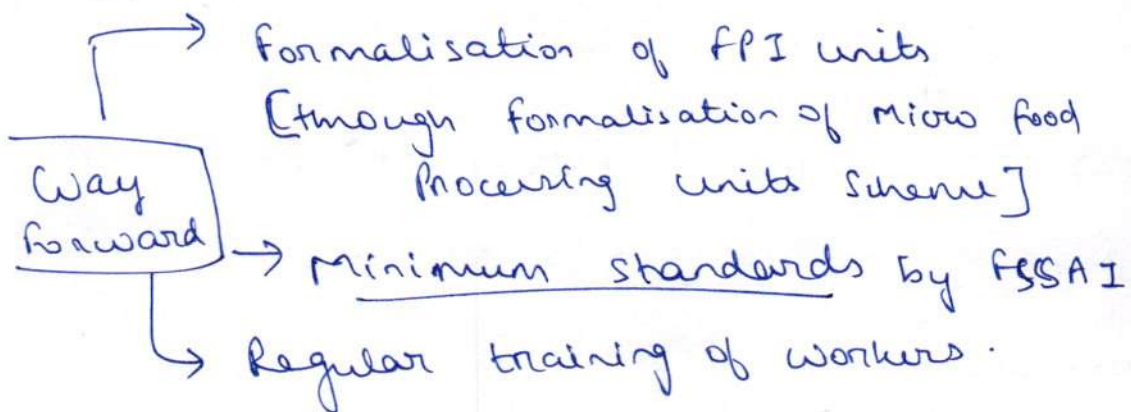 Formalisation of FPI units
[through formalisation of Micro food
Processing units Scheme]
Way
forward
Minimum standards by FSSAI
Regular training of workers.